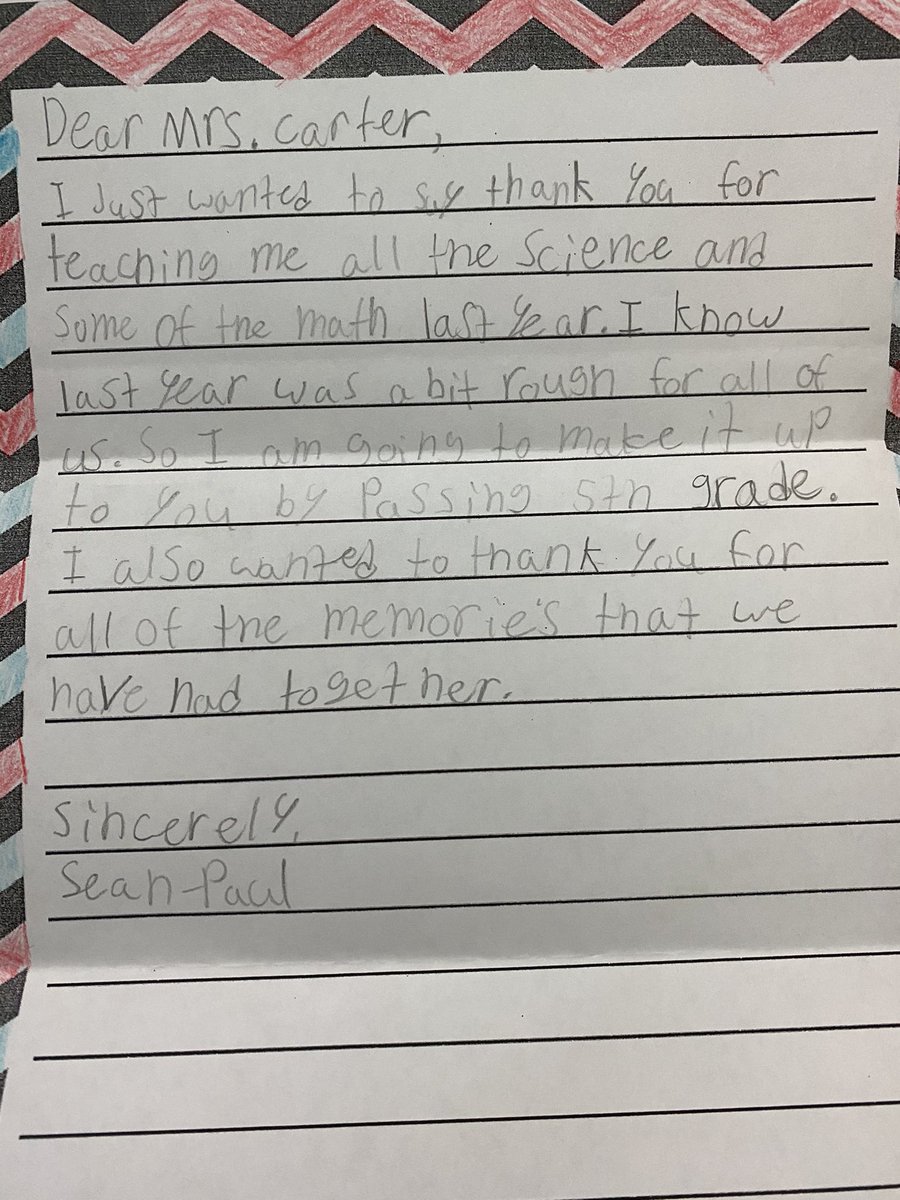 Dear Mrs. Carter,
I Just wanted to say thank You for
teaching me all the Science and
Some of the math last Year. I know
last Year was a bit rough for all of
us. So I am going to make it up
to You by Passing 5th grade.
I also wanted to thank You for
all of the memorie's that we
have had together.
Sincerely,
Sean-Paul